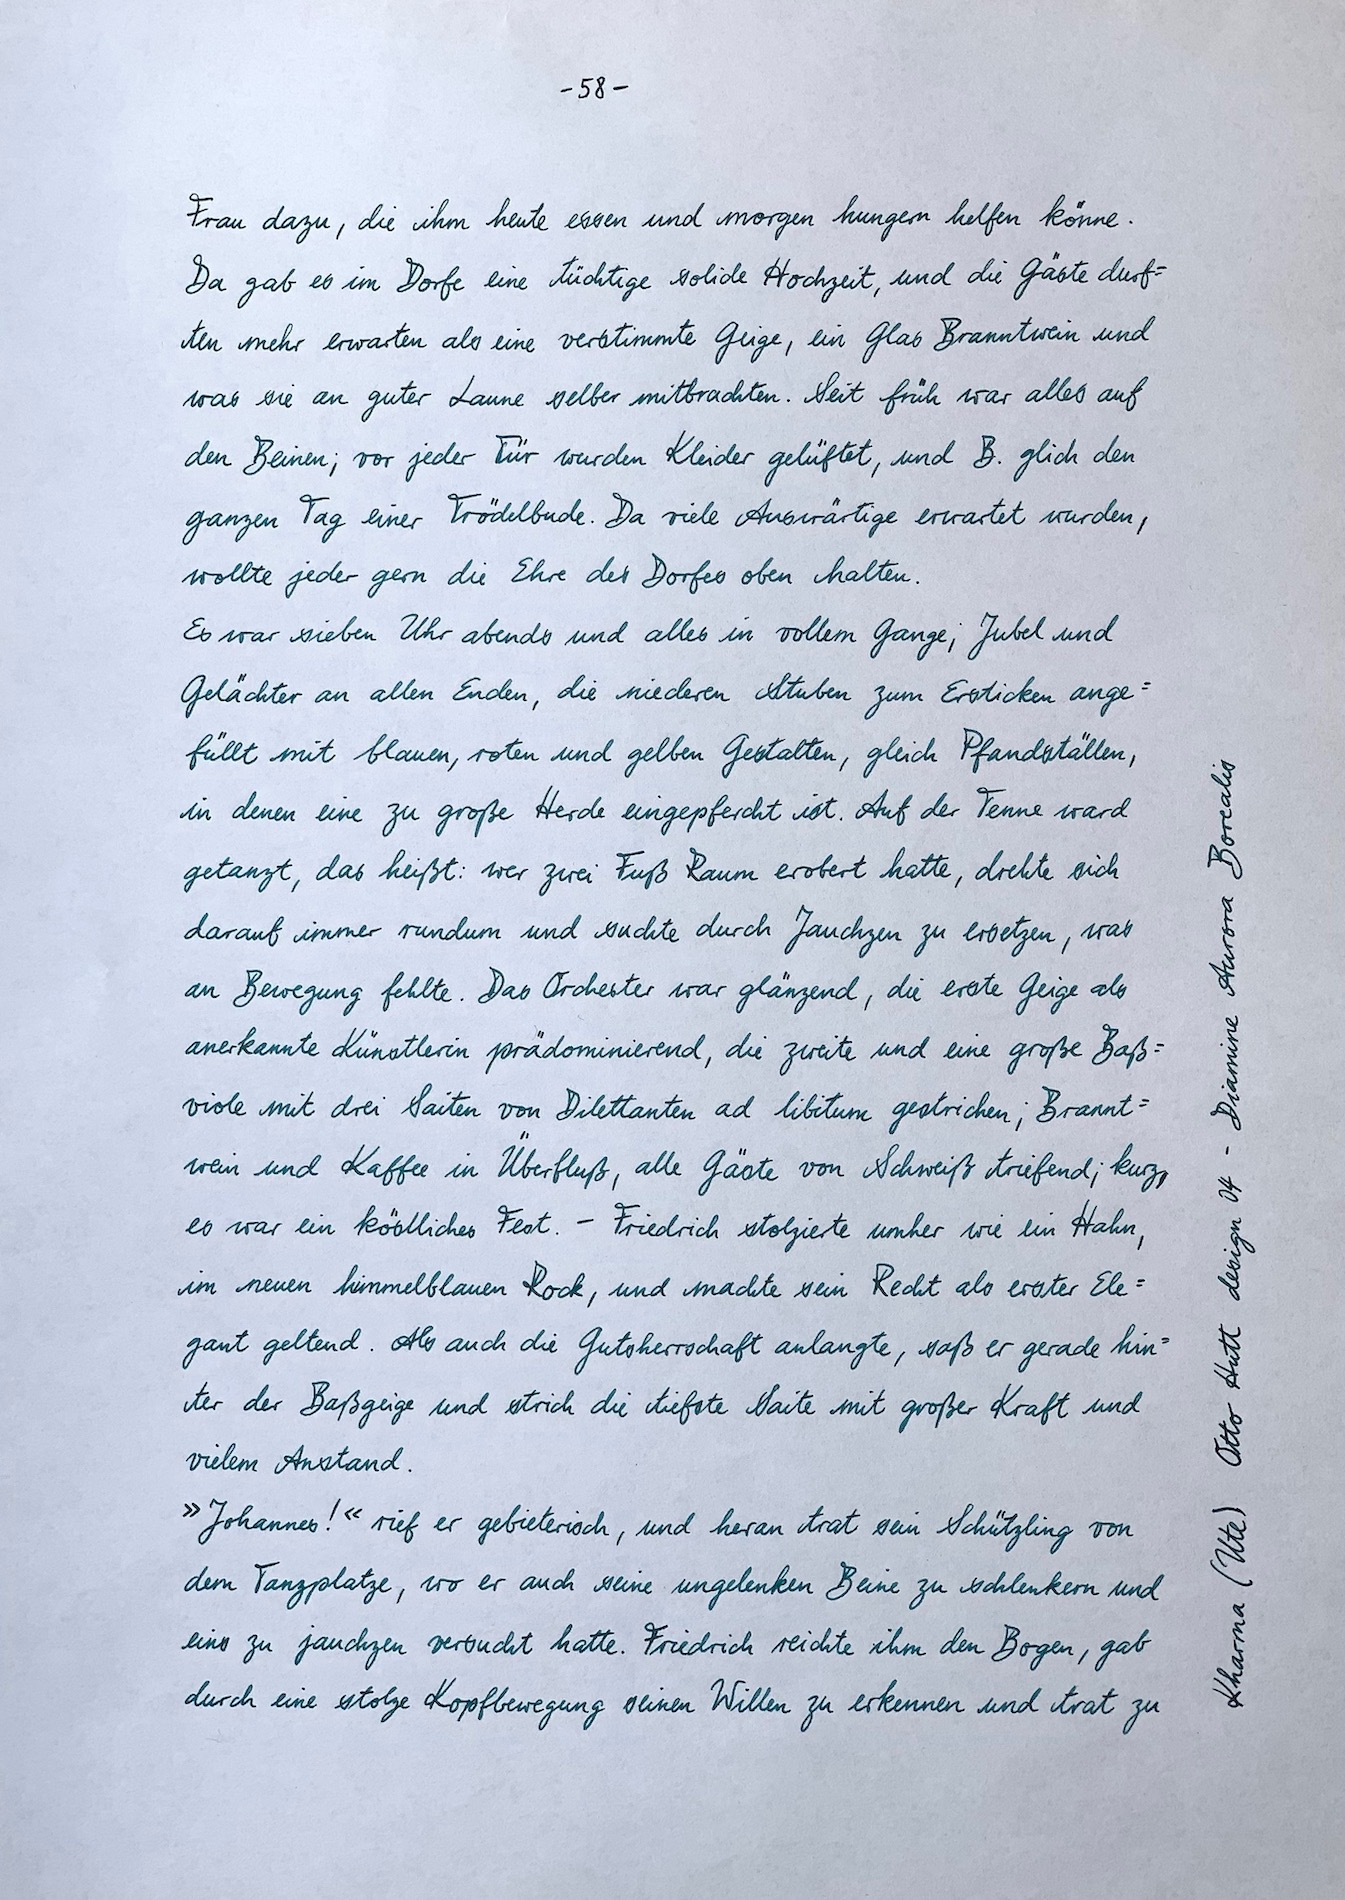 -58-
Frau dazu, die ihm heute essen und morgen hungern helfen könne.
Da gab es im Dorfe eine tüchtige solide Hochzeit, und die Gäste durf=
ten mehr erwarten als eine verstimmte Geige, ein Glas Branntwein und
was sie an guter Laune selber mitbrachten. Seit früh war alles auf
den Beinen; vor jeder Tür wurden Kleider gelüftet, und B. glich den
ganzen Tag einer Trödelbude. Da viele Auswärtige erwartet wurden,
wollte jeder gern die Ehre des Dorfes oben halten.
Es war sieben Uhr abends und alles in vollem Gange; Jubel und
Gelächter an allen Enden, die niederen Stuben zum Ersticken ange=
füllt mit blauen, roten und gelben Gestalten, gleich Pfandställen,
in denen eine zu große Herde eingepfercht ist. Auf der Tenne ward
getanzt, das heißt: wer zwei Fuß Raum erobert hatte, drehte sich
darauf immer rundum und suchte durch Jauchzen zu ersetzen, was
an Bewegung fehlte. Das Orchester war glänzend, die erste Geige als
anerkannte Künstlerin prädominierend, die zweite und eine große Baß=
viole mit drei Saiten von Dilettanten ad libitum gestrichen; Brannt=
wein und Kaffee in Überfluß, alle Gäste von Schweiß triefend; kurz,
es war ein köstliches Fest. – Friedrich stolzierte umher wie ein Hahn,
im neuen himmelblauen Rock, und machte sein Recht als erster Ele=
gant geltend. Als auch die Gutsherrschaft anlangte, saß er gerade hin=
ter der Baßgeige und strich die tiefste Saite mit großer Kraft und
vielem Anstand.
»Johannes!« rief er gebieterisch, und heran trat sein Schützling von
dem Tanzplatze, wo er auch seine ungelenken Beine zu schlenkern und
eins zu jauchzen versucht hatte. Friedrich reichte ihm den Bogen, gab
durch eine stolze Kopfbewegung seinen Willen zu erkennen und trat zu
Kharma (Ute) Otto Hutt design 04 - Diamine Aurora Borealis